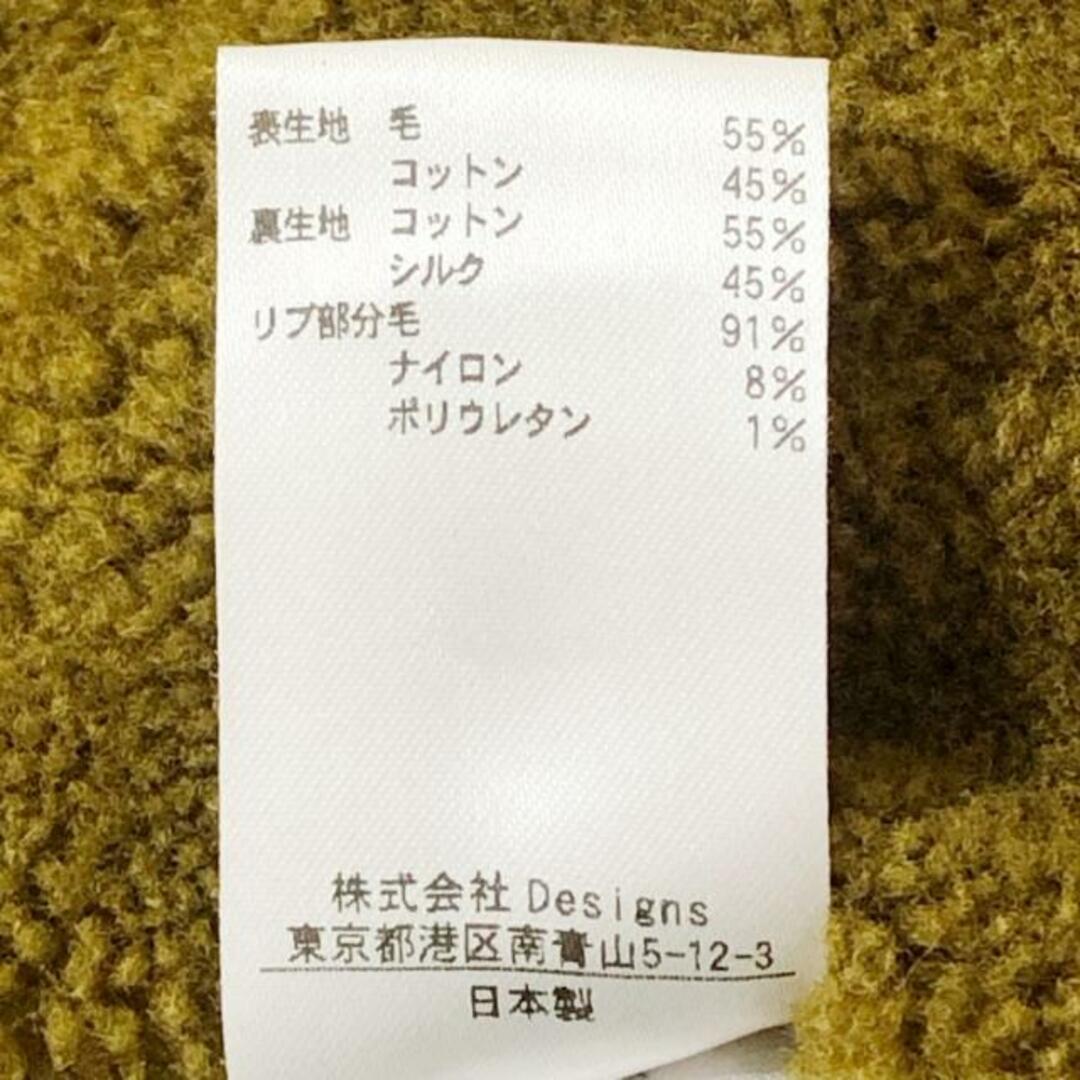 表生地 毛 55%
コットン 45%
裏生地 コットン 55%
シルク 45%
リブ部分毛 91%
ナイロン 8%
ポリウレタン 1%
株式会社 Designs
東京都港区南青山5-12-3
日本製